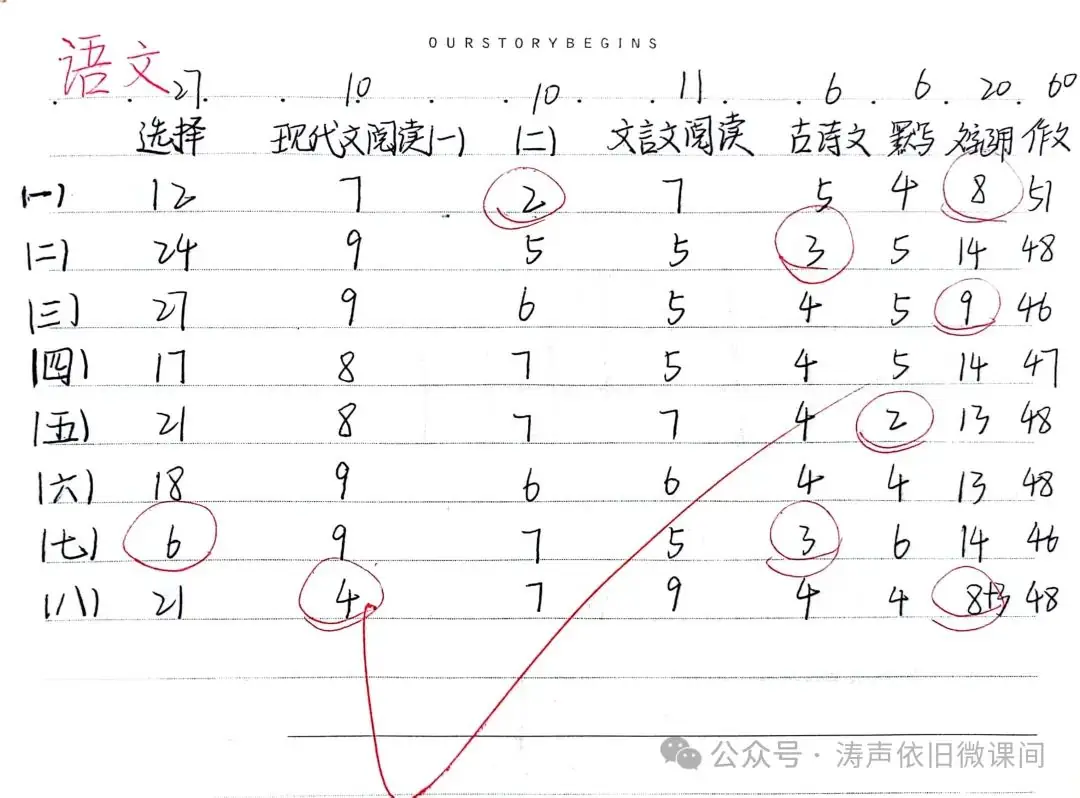 OURSTORYBEGINS
语文
27 10 10 11 6 6 20 60
选择 现代文阅读(一) (二) 文言文阅读 古诗文 默写 作文
(一) 12 7 2 7 5 4 8 51
(二) 24 9 5 5 3 5 14 48
(三) 27 9 6 5 4 5 9 46
(四) 17 8 7 5 4 5 14 47
(五) 21 8 7 7 4 2 13 48
(六) 18 9 6 6 4 4 13 48
(七) 6 9 7 5 3 6 14 46
(八) 21 4 7 9 4 4 8+3 48
公众号·涛声依旧微课间